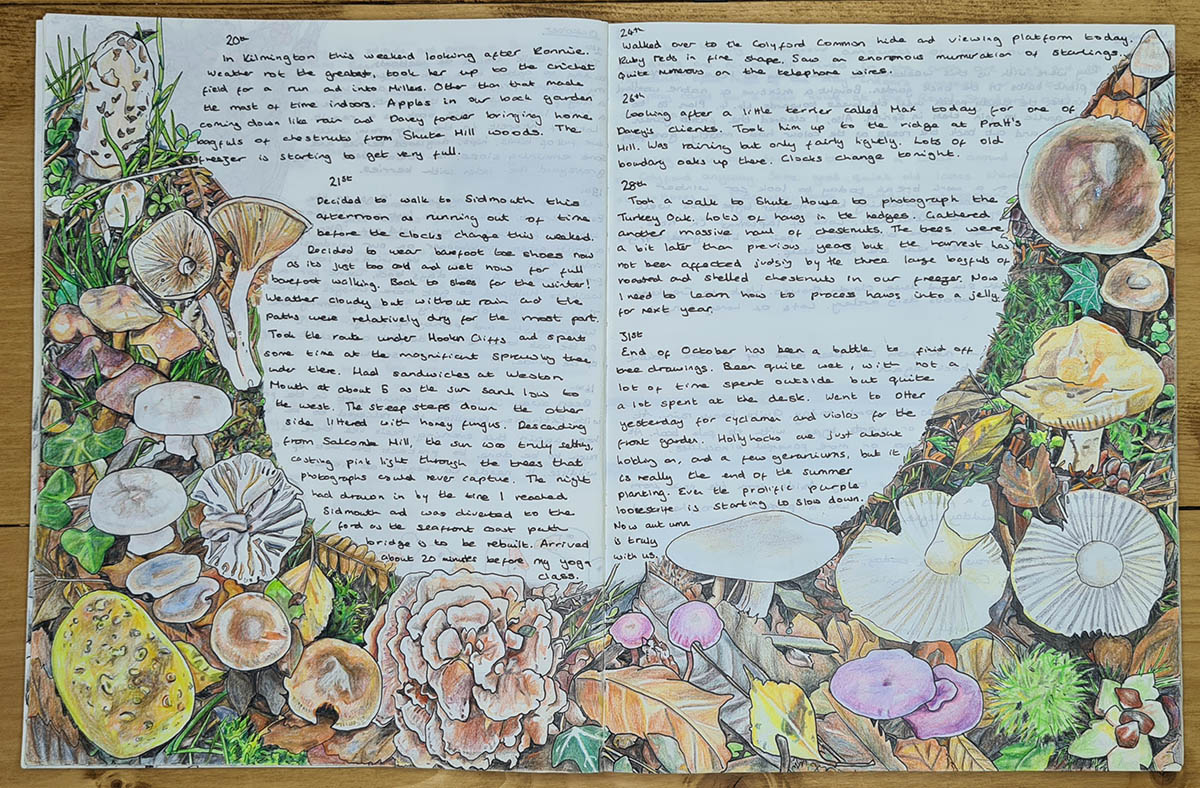 20th
In Kilmington this weekend looking after Bonnie.
Weather not the greatest, took her up to the cricket
field for a run and into Millers. Other than that made
the most of time indoors. Apples in our back garden
coming down like rain and Davey forever bringing home
bagfuls of chestnuts from Shute Hill woods. The
freezer is starting to get very full.
21st
Decided to walk to Sidmouth this
afternoon as running out of time
before the clocks change this weekend.
Decided to wear barefoot toe shoes now
as its just too cold and wet now for full
barefoot walking. Back to shoes for the winter!
Weather cloudy but without rain and the
paths were relatively dry for the most part.
Took the route under Hooken Cliffs and spent
some time at the magnificent sprawling tree
under there. Had sandwiches at Weston
Mouth at about 5 as the sun sank low to
the west. The steep steps down the other
side littered with honey fungus. Descending
from Salcombe Hill, the sun was truly setting,
casting pink light through the trees that
photographs could never capture. The night
had drawn in by the time I reached
Sidmouth and was diverted to the
ford as the seafront coast path
bridge is to be rebuilt. Arrived
about 20 minutes before my yoga
class.
24th
Walked over to the Colyford Common hide and viewing platform today.
Ruby reds in fine shape. Saw an enormous murmuration of starlings.
Quite numerous on the telephone wires.
26th
Looking after a little terrier called Max today for one of
Davey's clients. Took him up to the ridge at Pratt's
Hill. Was raining but only fairly lightly. Lots of old
boundary oaks up there. Clocks change tonight.
28th
Took a walk to Shute House to photograph the
Turkey Oak. Lots of haws in the hedges. Gathered
another massive haul of chestnuts. The trees were
a bit later than previous years but the harvest has
not been affected judging by the three large bagfuls of
roasted and shelled chestnuts in our freezer. Now
I need to learn how to process haws into a jelly,
for next year.
31st
End of October has been a battle to finish off
tree drawings. Been quite wet, with not a
lot of time spent outside but quite
a lot spent at the desk. Went to Otter
yesterday for cyclamen and violas for the
front garden. Hollyhocks are just about
holding on, and a few geraniums, but it
is really the end of the summer
planting. Even the prolific purple
loosestrife is starting to slow down.
Now autumn
is truly
with us.